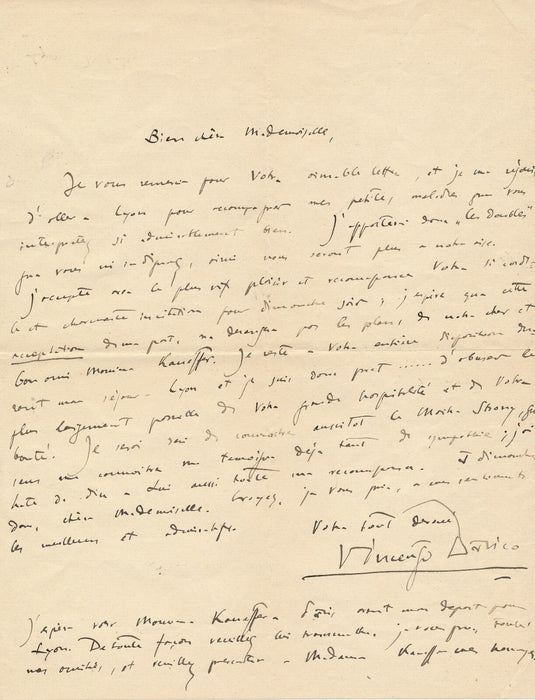 Bien chère Mademoiselle,
Je vous remercie pour Votre aimable lettre, et je me réjouis
d'aller à Lyon pour accompagner mes petites mélodies que vous
interprétez si admirablement bien. J'apporterai donc "les doubles"
que vous m'indiquez, ainsi nous serons plus à notre aise.
J'accepte avec le plus vif plaisir et reconnaissance Votre si cordia-
le et charmante invitation pour dimanche soir; j'espère que cette
acceptation de ma part, ne dérangera pas les plans de notre cher et
bon ami Monsieur Kaueffer. Je reste à Votre entière disposition du-
rant mon séjour à Lyon et je suis donc prêt ...... d'abuser le
plus largement possible de Votre grande hospitalité et de Votre
bonté! Je serai ravi de connaître aussitôt la Strong, qui
sans me connaître me témoigne déjà tant de sympathie; j'ai
hâte de dire à Lui aussi toute ma reconnaissance. à dimanche
donc, chère Mademoiselle. Croyez, je vous prie, à mes sentiments
les meilleurs et admiratifs.
Votre tout dévoué
Vincenzo Davico
J'espère voir Monsieur Kaueffer à Paris avant mon départ pour
Lyon. De toute façon veuillez lui transmettre, je vous prie, toutes
mes amitiés, et veuillez présenter à Madame Kaueffer mes hommages